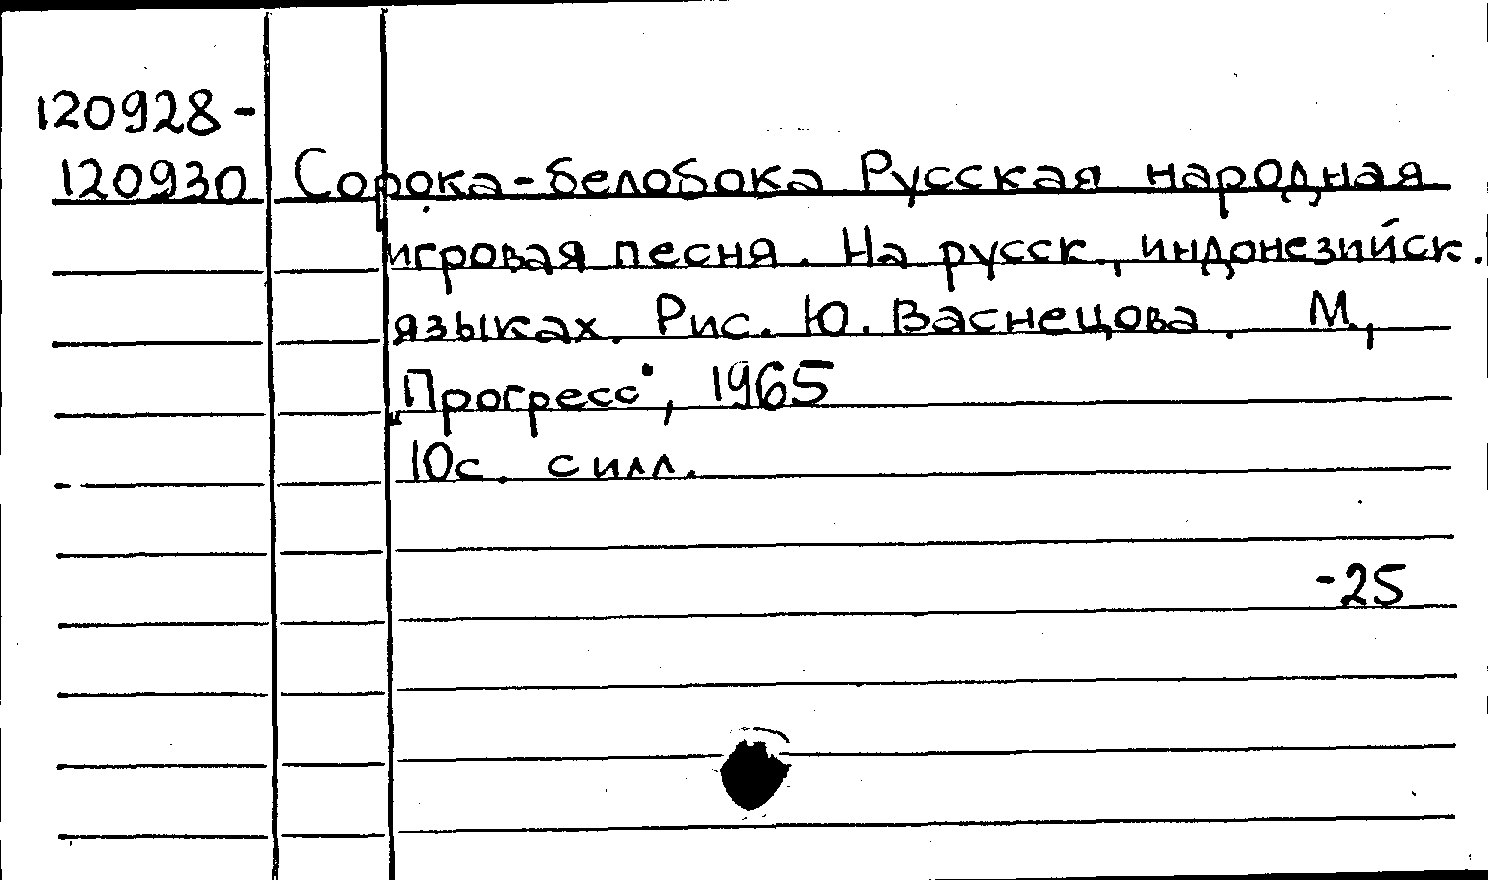 120928-
120930 Сорока-белобока Русская народная
игровая песня. На русск., индонезийск.
языках. Рис. Ю. Васнецова. М.,
„Прогресс", 1965
10с. с илл.
-25